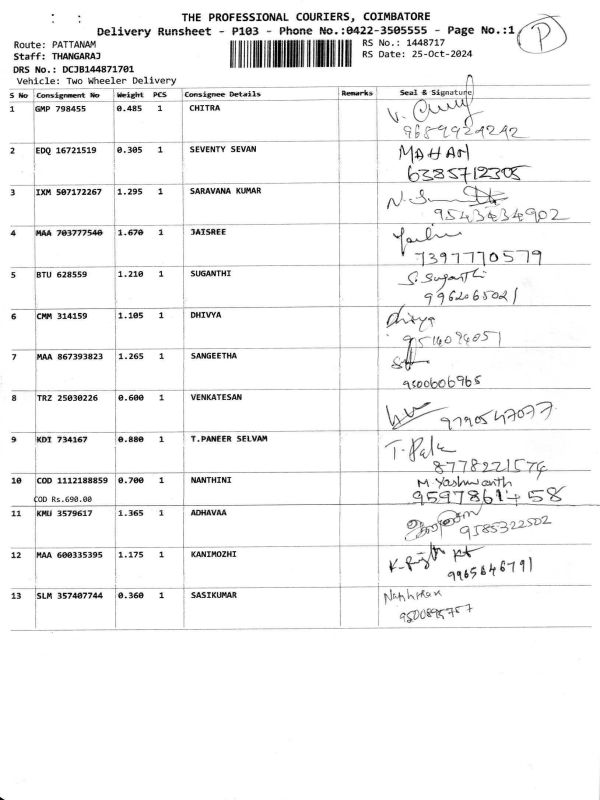 THE PROFESSIONAL COURIERS, COIMBATORE
Delivery Runsheet - P103 - Phone No.:0422-3505555 - Page No.:1 P
Route: PATTANAM RS No.: 1448717
Staff: THANGARAJ RS Date: 25-Oct-2024
DRS No.: DCJB144871701
Vehicle: Two Wheeler Delivery
S No Consignment No Weight PCS Consignee Details Remarks Seal & Signature
1 GMP 798455 0.485 1 CHITRA
9689924242
2 EDQ 16721519 0.305 1 SEVENTY SEVAN MAHAN
6385712305
3 IXM 507172267 1.295 1 SARAVANA KUMAR
9543434902
4 MAA 703777540 1.670 1 JAISREE
7397770579
5 BTU 628559 1.210 1 SUGANTHI S. Suganthi
9962065021
6 CMM 314159 1.105 1 DHIVYA Dhivya
9514094051
7 MAA 867393823 1.265 1 SANGEETHA
9500606965
8 TRZ 25030226 0.600 1 VENKATESAN
9790547077
9 KDI 734167 0.880 1 T.PANEER SELVAM
8778221574
10 COD 1112188859 0.700 1 NANTHINI M. Yashwanth
COD Rs.690.00 9597861458
11 KMU 3579617 1.365 1 ADHAVAA
9585322502
12 MAA 600335395 1.175 1 KANIMOZHI
9965646791
13 SLM 357407744 0.360 1 SASIKUMAR
9500895757